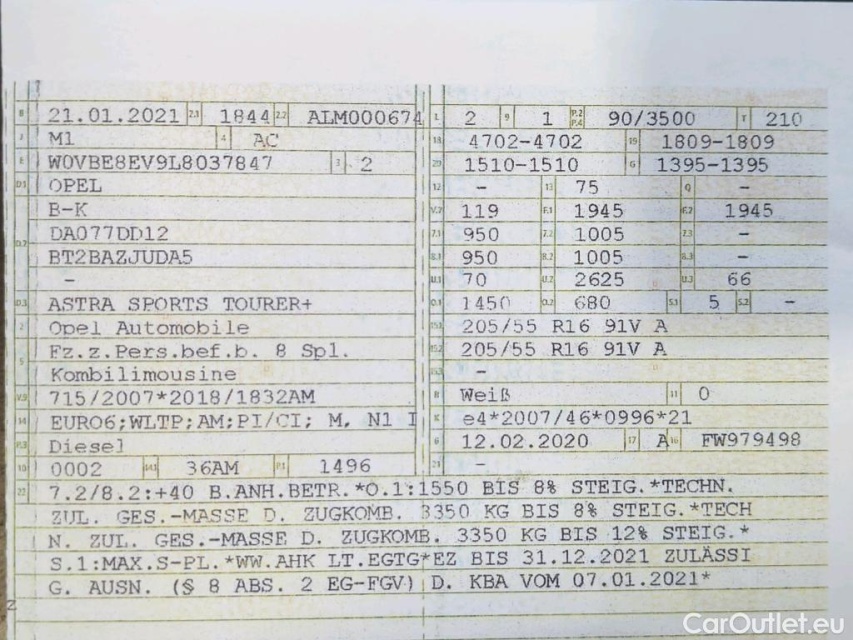 B 21.01.2021 2.1 1844 2.2 ALM000674 L 2 9 1 P.2 P.4 90/3500 T 210
J M1 4 AC 18 4702-4702 19 1809-1809
E W0VBE8EV9L8037847 3 2 20 1510-1510 G 1395-1395
D.1 OPEL 12 - 13 75 Q -
B-K V.7 119 F.1 1945 F.2 1945
D.2 DA077DD12 7.1 950 7.2 1005 7.3 -
BT2BAZJUDA5 8.1 950 8.2 1005 8.3 -
- U.1 70 U.2 2625 U.3 66
D.3 ASTRA SPORTS TOURER+ O.1 1450 O.2 680 S.1 5 S.2 -
2 Opel Automobile 15.1 205/55 R16 91V A
5 Fz.z.Pers.bef.b. 8 Spl. 15.2 205/55 R16 91V A
Kombilimousine 15.3 -
V.9 715/2007*2018/1832AM R Weiß 11 0
14 EURO6;WLTP;AM;PI/CI; M, N1 I K e4*2007/46*0996*21
P.3 Diesel 6 12.02.2020 17 A 16 FW979498
10 0002 14.1 36AM P.1 1496 21 -
22 7.2/8.2:+40 B.ANH.BETR.*O.1:1550 BIS 8% STEIG.*TECHN.
ZUL. GES.-MASSE D. ZUGKOMB. 3350 KG BIS 8% STEIG.*TECH
N. ZUL. GES.-MASSE D. ZUGKOMB. 3350 KG BIS 12% STEIG.*
S.1:MAX.S-PL.*WW.AHK LT.EGTG*EZ BIS 31.12.2021 ZULÄSSI
G. AUSN. (§ 8 ABS. 2 EG-FGV) D. KBA VOM 07.01.2021*
Z
CarOutlet.eu